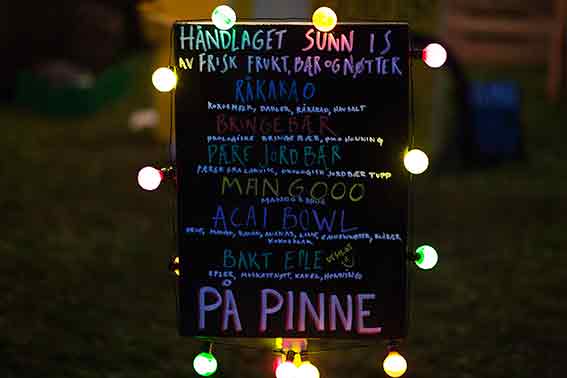 HÅNDLAGET SUNN IS
AV FRISK FRUKT, BÆR OG NØTTER
RÅKAKAO
KOKOSMELK, DADLER, RÅKAKAO, HAVSALT
BRINGEBÆR
ØKOLOGISKE BRINGEBÆR, HONNING
PÆRE JORDBÆR
PÆRER FRA ØKOLOGISK JORDBÆR TOPP
MANGOOO
MANGO &
ACAI BOWL
MANGO, BANAN, ANANAS, BLÅBÆR
BAKT EPLE
EPLER, MUSKATTNØTT, KANEL, HONNING
PÅ PINNE